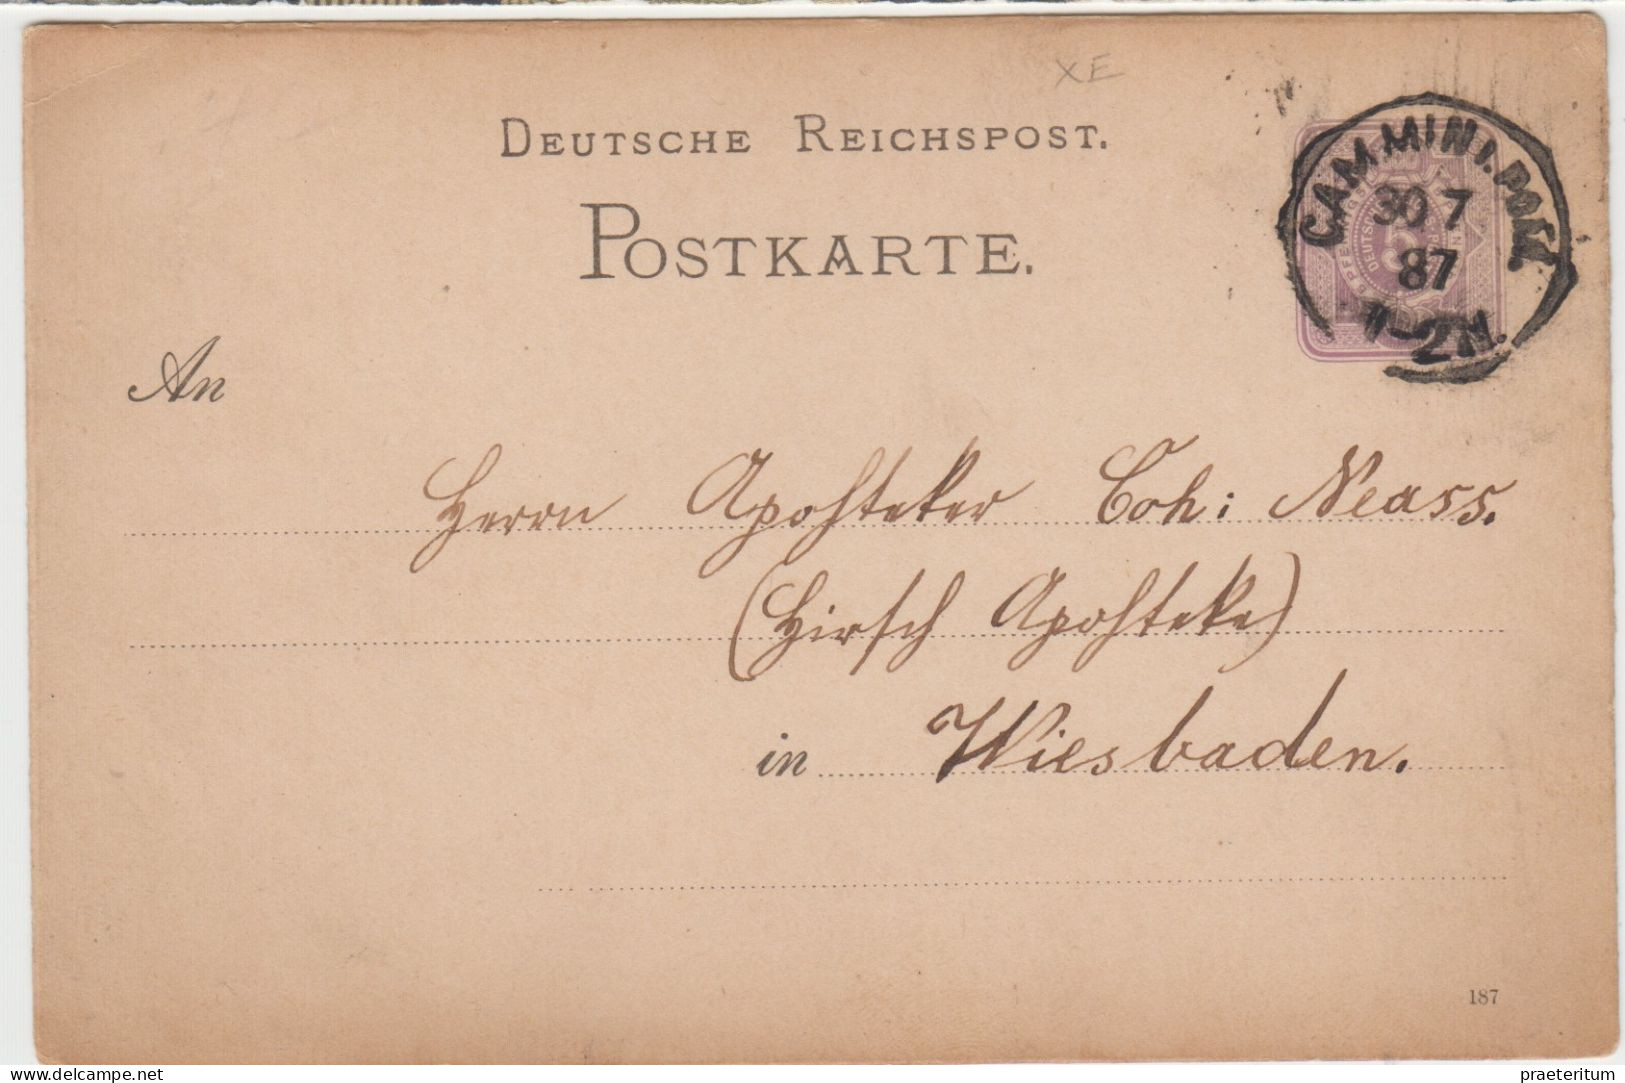 XE
DEUTSCHE REICHSPOST.
POSTKARTE.
CAMMIN I. POM.
30 7
87
1-2N.
An
Herrn Apotheker Neass.
(Hirsch Apotheke)
in Wiesbaden.
187
www.delcampe.net
praeteritum